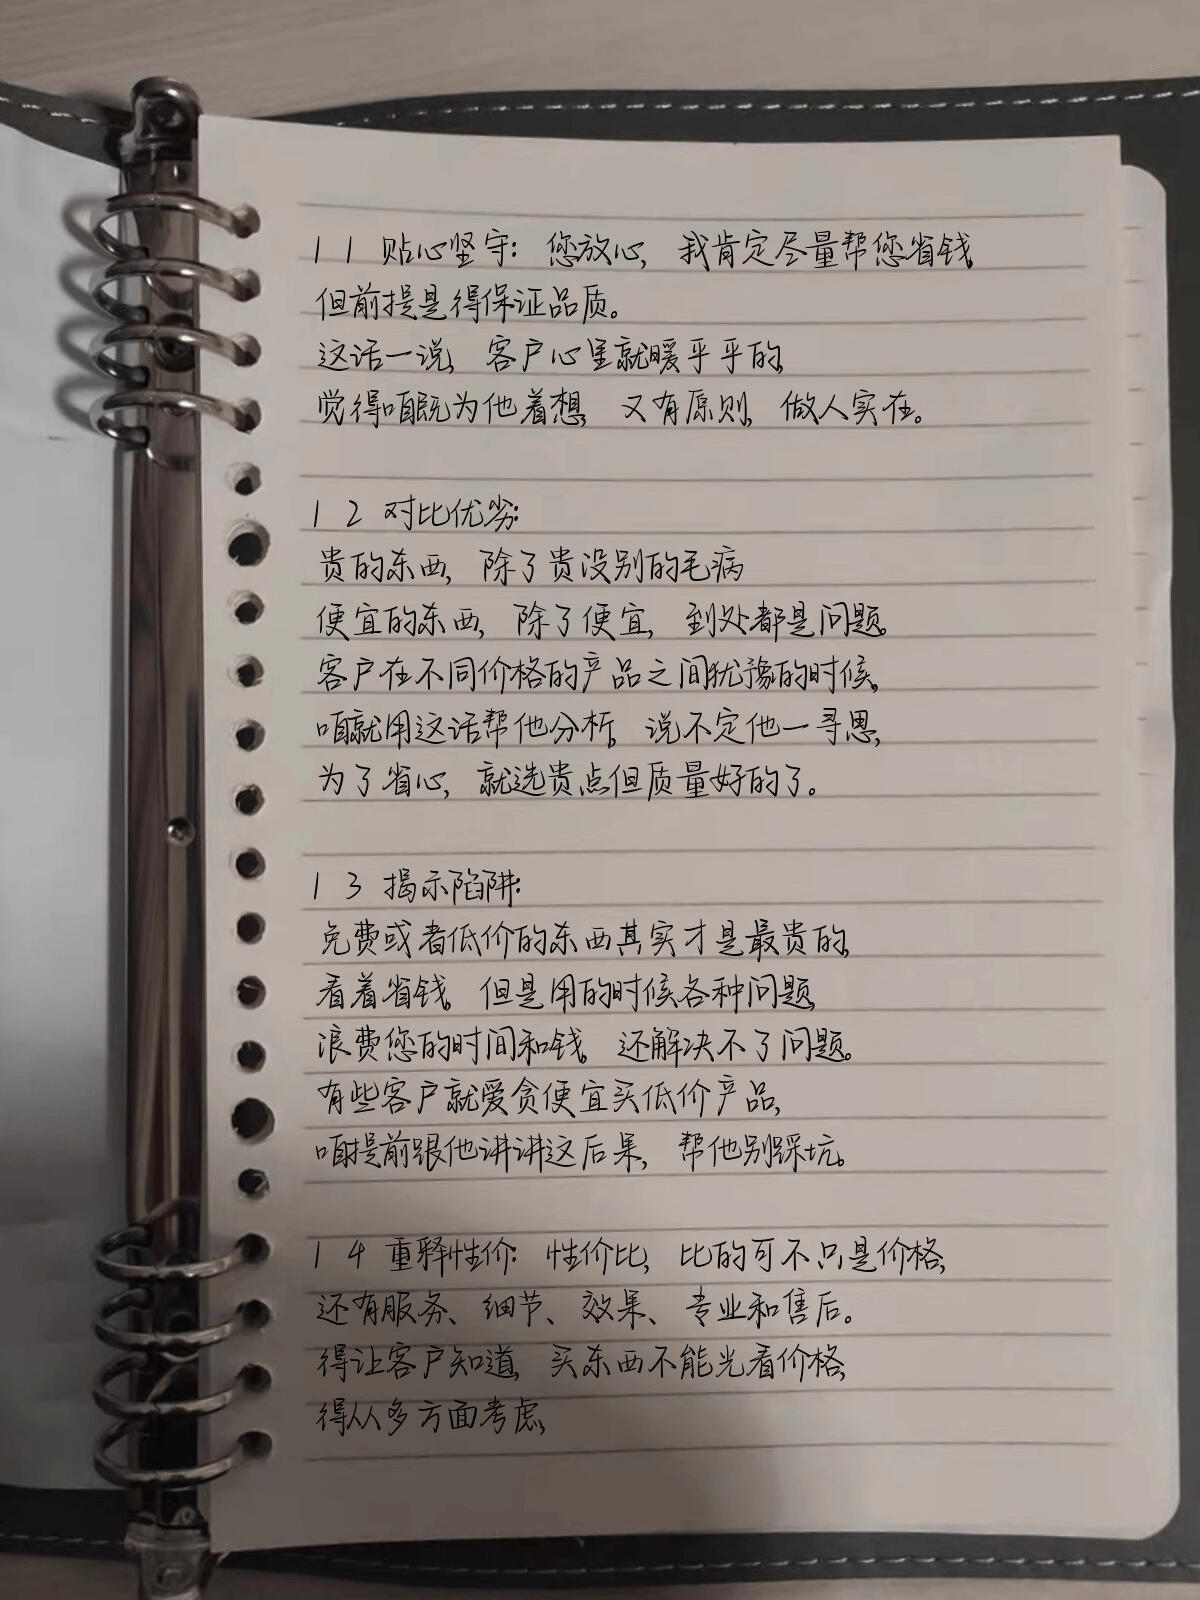 11 贴心坚守：您放心，我肯定尽量帮您省钱，
但前提是得保证品质。
这话一说，客户心里就暖乎乎的，
觉得咱既为他着想，又有原则，做人实在。
12 对比优劣：
贵的东西，除了贵没别的毛病
便宜的东西，除了便宜，到处都是问题。
客户在不同价格的产品之间犹豫的时候，
咱就用这话帮他分析，说不定他一寻思，
为了省心，就选贵点但质量好的了。
13 揭示陷阱：
免费或者低价的东西其实才是最贵的，
看着省钱，但是用的时候各种问题，
浪费您的时间和钱，还解决不了问题。
有些客户就爱贪便宜买低价产品，
咱提前跟他讲讲这后果，帮他别踩坑。
14 重释性价：性价比，比的可不只是价格，
还有服务、细节、效果、专业和售后。
得让客户知道，买东西不能光看价格，
得从多方面考虑，